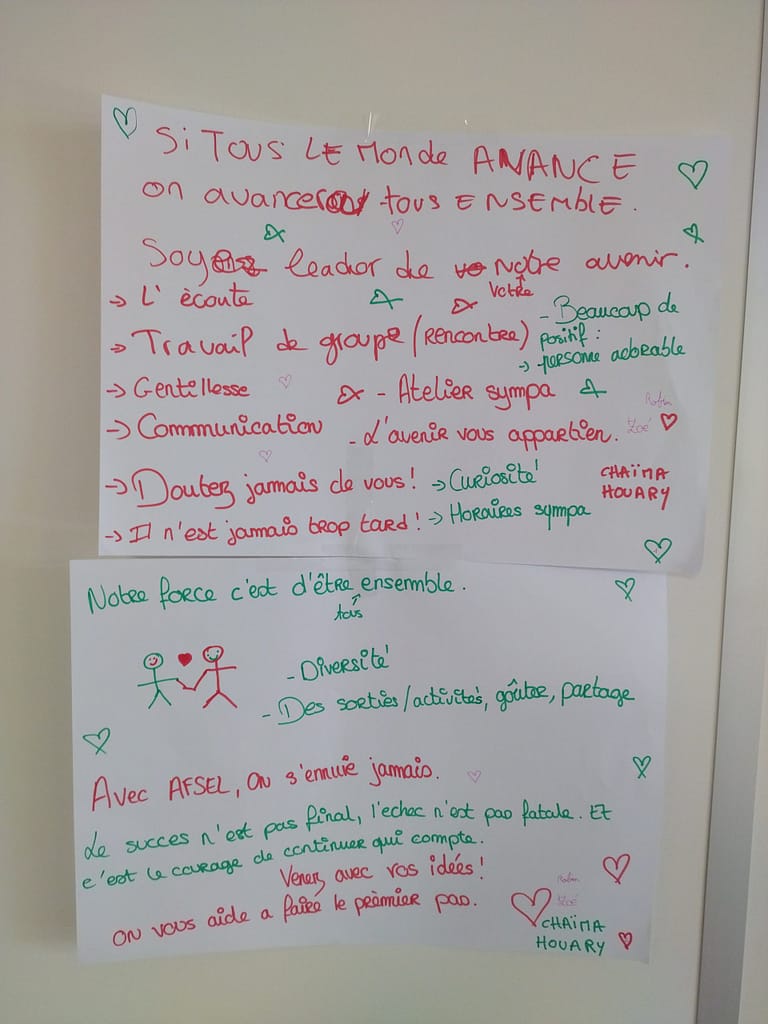 Si TOUS LE MONDE AVANCE
on avancera tous ENSEMBLE.
Soyez leador de Notre avenir.
Votre
→ L' écoute
→ Travail de groupe (RENCONTRE)
- Beaucoup de
positif :
→ personne adorable
→ Gentillesse
- Atelier sympa
→ Communication
- L'avenir vous appartien.
Robin
Zoé
→ Doutez jamais de vous !
→ Curiosité
CHAÏMA
HOUARY
→ Il n'est jamais trop tard !
→ Horaires sympa
Notre force c'est d'être ensemble.
tous
- Diversité
- Des sorties/activités, goûter, partage
Avec AFSEL, ON s'ennuie jamais.
Le succes n'est pas final, l'echec n'est pas fatale. Et
c'est le courage de continuer qui compte.
Venez avec vos idées !
ON vous aide a faire le prèmier pas.
Robin
Zoé
CHAÏMA
HOUARY